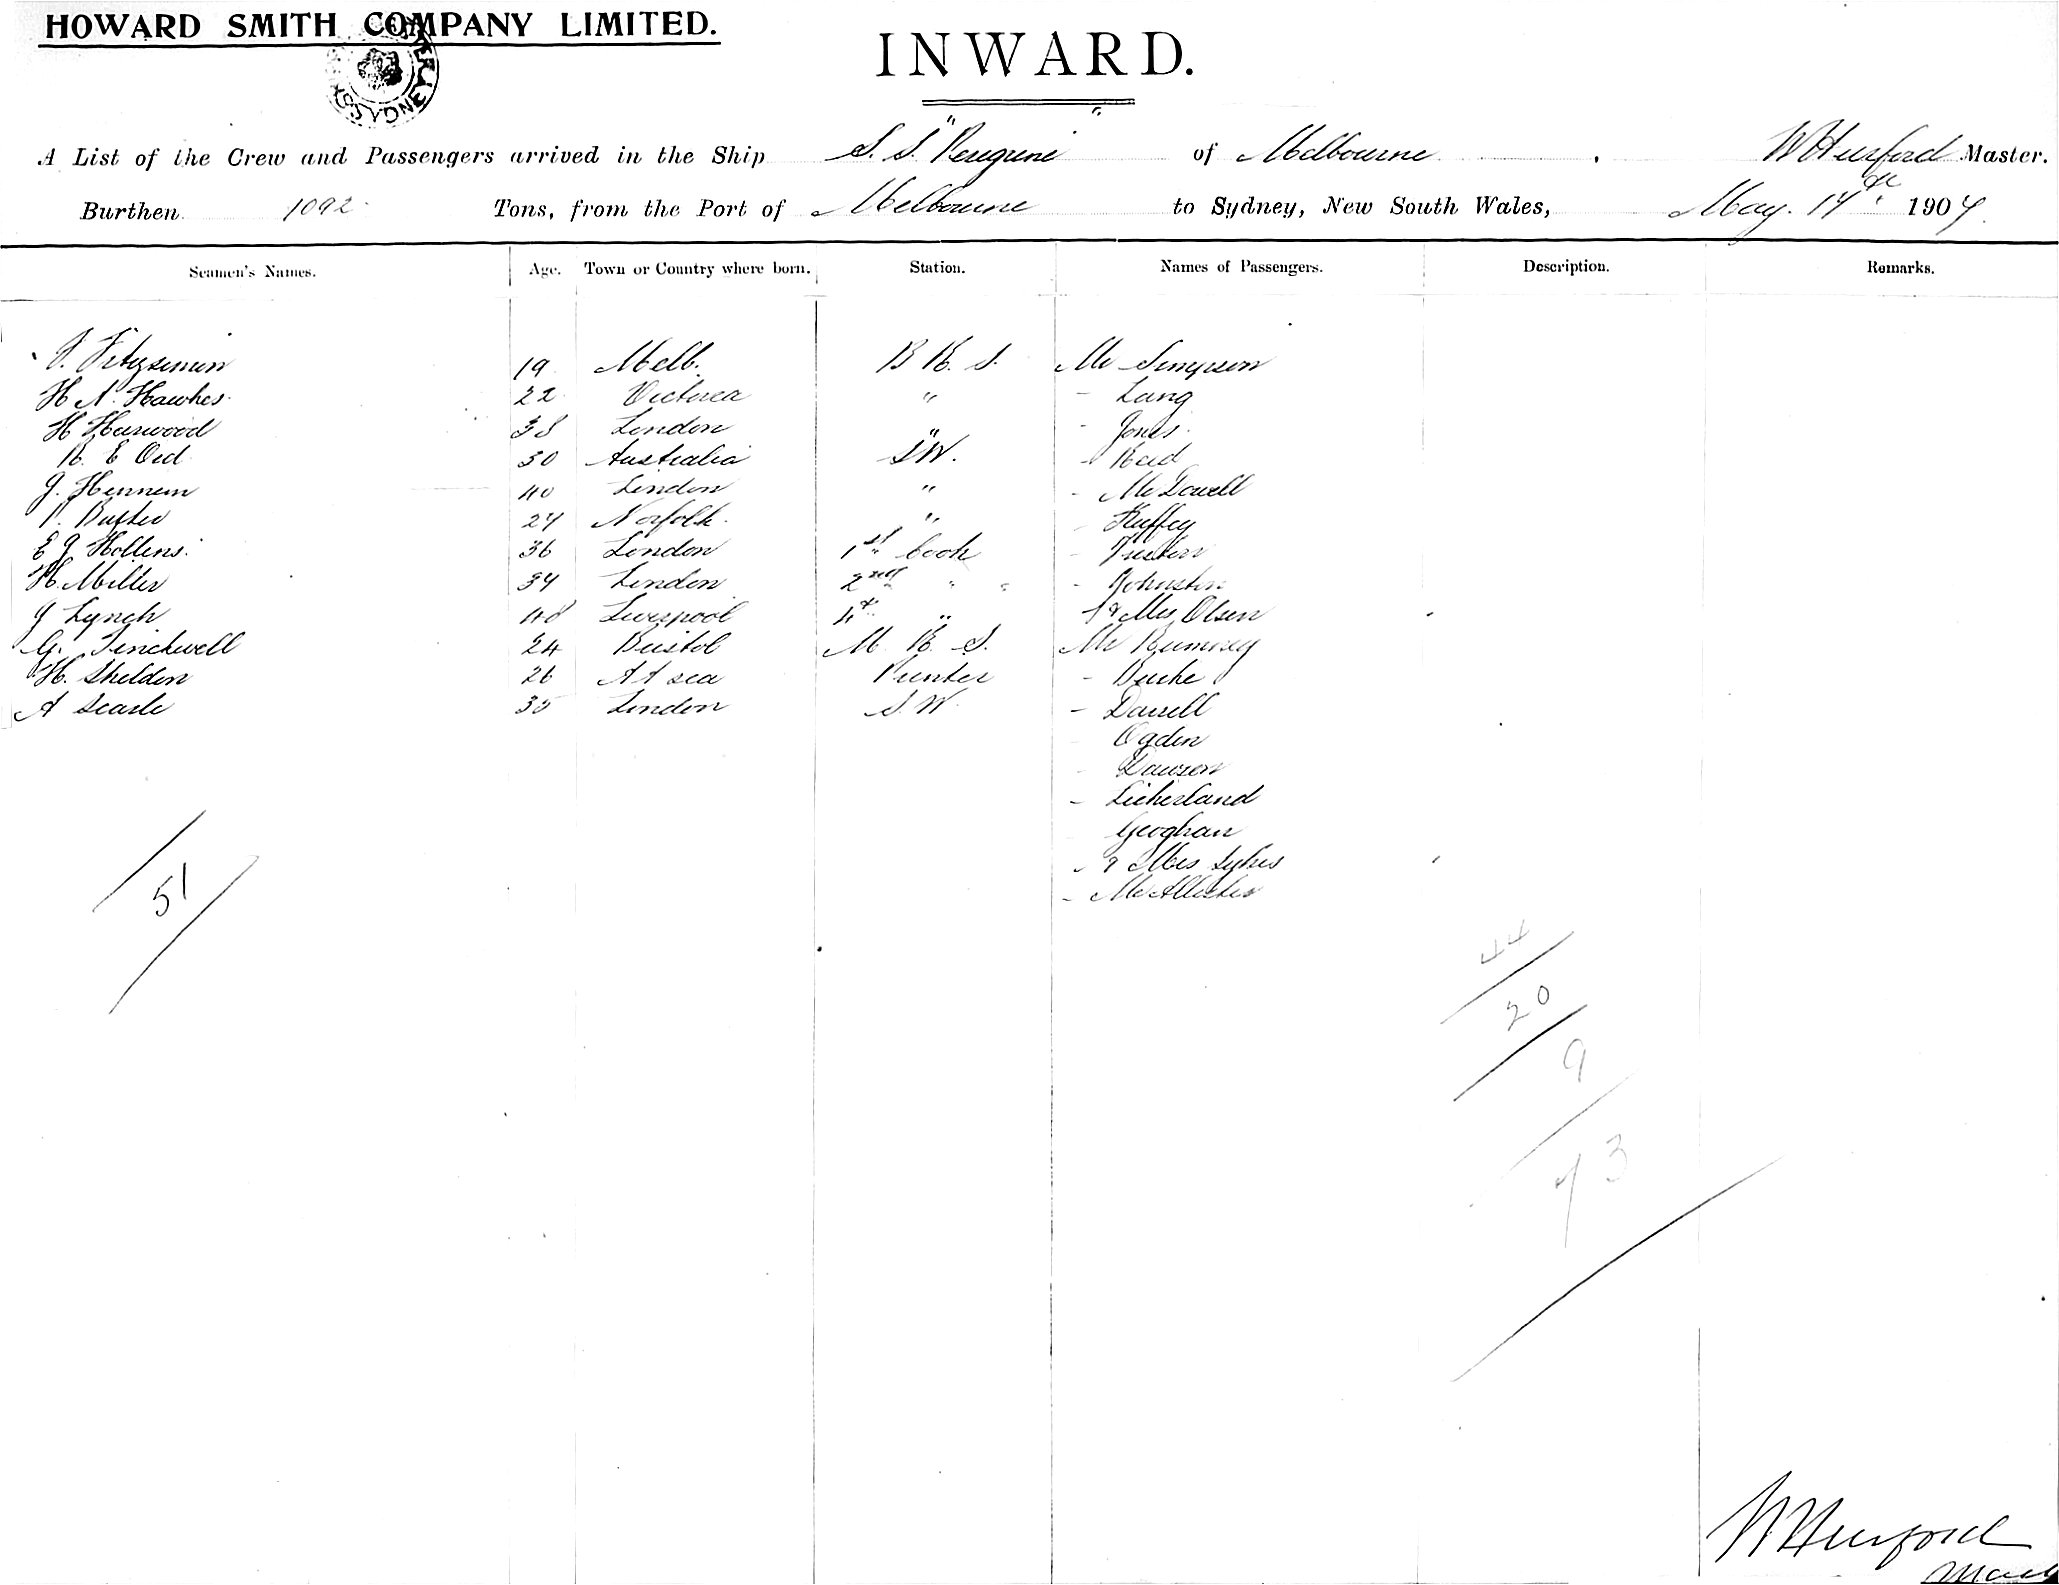 HOWARD SMITH COMPANY LIMITED.
SYDNEY
INWARD.
A List of the Crew and Passengers arrived in the Ship S. S. "Peregrine" of Melbourne W Hurford Master.
Burthen 1092 Tons, from the Port of Melbourne to Sydney, New South Wales, May. 14th 1904
Seamen's Names. Age. Town or Country where born. Station. Names of Passengers. Description. Remarks.
Fitzsimon 19 Melb. B R. S. Mr Simpson
H N. Hawkes 22 Victoria " - Lang
H Harwood 38 London " - Jones
R. E Ord 30 Australia S W. - Reid
J. Hennem 40 London " - McDowell
Buster 24 Norfolk "
E J Hollens 36 London 1st Cook
H. Miller 34 London 2nd " " - Johnston
J Lynch 48 Liverpool 4th " " & Mrs Olsen
G. Tinckwell 24 Bristol M. R. S. Mr Rumsey
H. Sheldon 26 At sea - Burke
A Searle 35 London S. W. - Darrell
Ogden
Dawson
-
Geoghan
- & Mrs Sykes
- McAllister
51
44
20
9
73
W Hurford